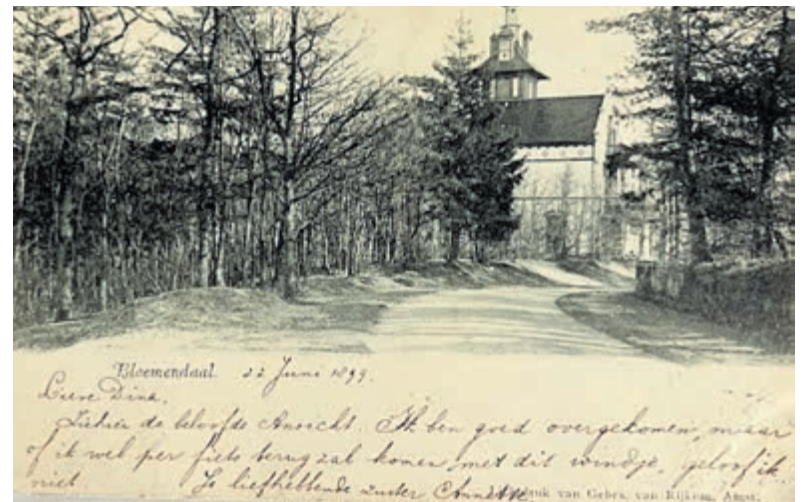 Bloemendaal. 22 Juni 1899.
Lieve Dina,
Ziehier de beloofde Ansicht. Ik ben goed overgekomen, maar
of ik wel per fiets terug zal komen met dit windje, geloof ik
niet. Je liefhebbende zuster Annette
druk van Gebr. van Rijkom, Amst.